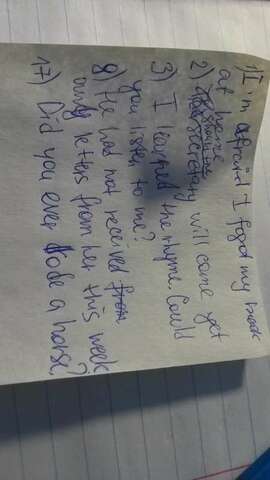 1) I'm afraid I fogot my book
at home
2) secretary will come yet
3) I learned the rhyme. Could
you listen to me?
8) He had not received from
any letters from her this week
17) Did you ever rode a horse?